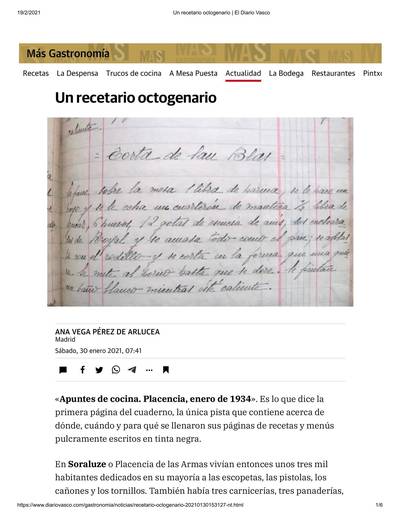 19/2/2021 Un recetario octogenario | El Diario Vasco
Más Gastronomía
Recetas La Despensa Trucos de cocina A Mesa Puesta Actualidad La Bodega Restaurantes
Un recetario octogenario
caliente.
= Torta de San Blas =
sobre la mesa 1 libra de harina, se le hace un
y se le echa un cuarterón de manteca ½ libra de
6 huevos, 12 gotas de esencia de anís, dos
de Royal y se amasa todo como el pan; se
con el rodillo y se corta en la forma que una
se mete al horno hasta que se dore. Se pintan
baño blanco mientras esté caliente.
ANA VEGA PÉREZ DE ARLUCEA
Madrid
Sábado, 30 enero 2021, 07:41
«Apuntes de cocina. Placencia, enero de 1934». Es lo que dice la
primera página del cuaderno, la única pista que contiene acerca de
dónde, cuándo y para qué se llenaron sus páginas de recetas y menús
pulcramente escritos en tinta negra.
En Soraluze o Placencia de las Armas vivían entonces unos tres mil
habitantes dedicados en su mayoría a las escopetas, las pistolas, los
cañones y los tornillos. También había tres carnicerías, tres panaderías,
https://www.diariovasco.com/gastronomia/noticias/recetario-octogenario-20210130153127-nt.html 1/6